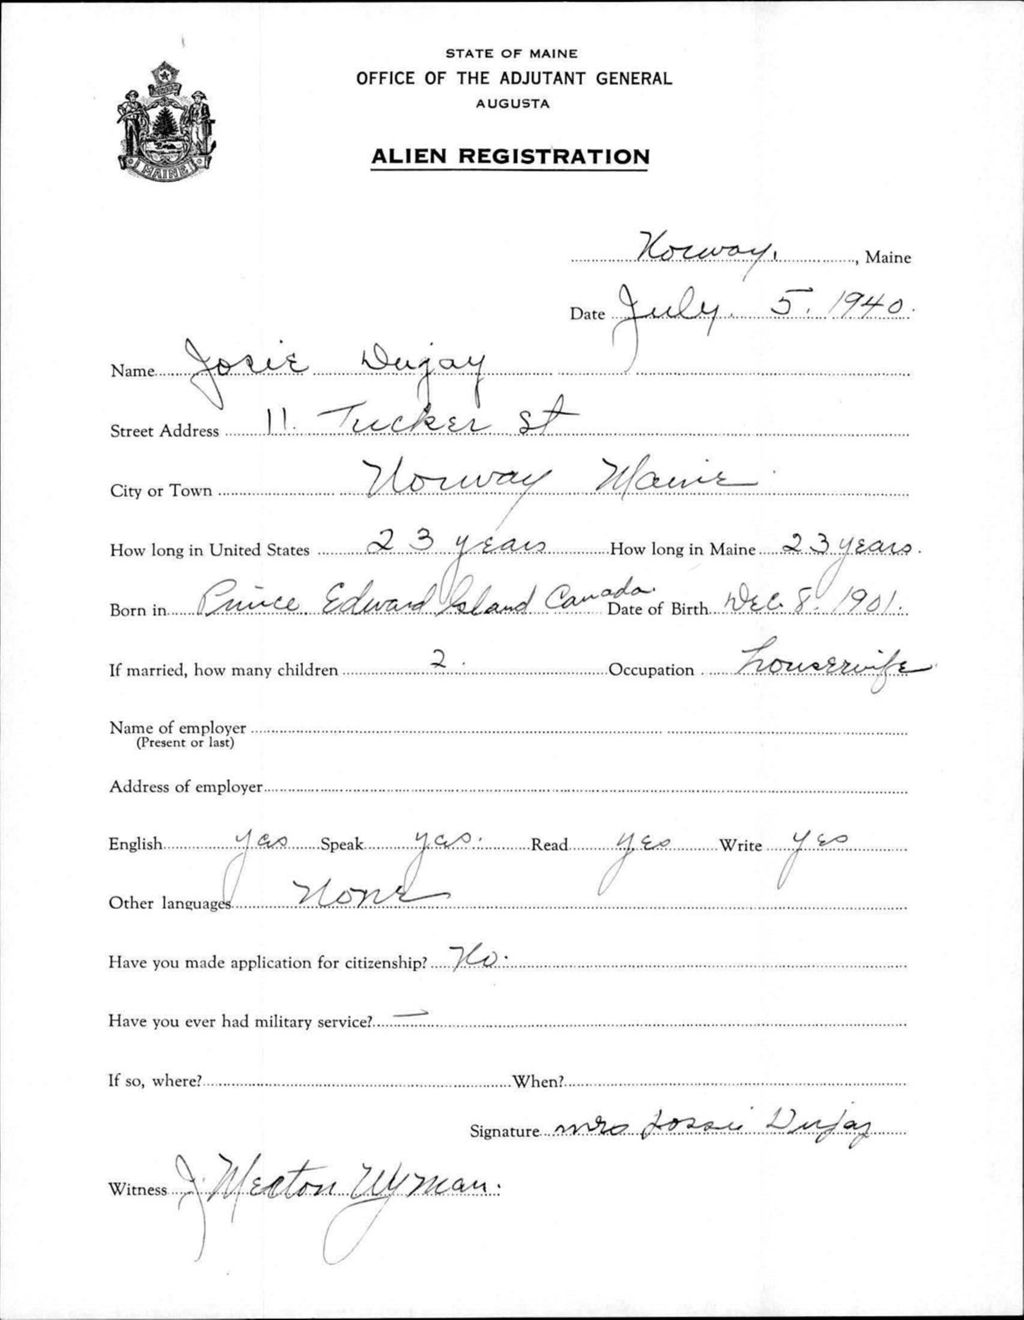 STATE OF MAINE
OFFICE OF THE ADJUTANT GENERAL
AUGUSTA
ALIEN REGISTRATION
MAINE
Norway, Maine
Date July 5, 1940.
Name Josie Dujay
Street Address 11 Tucker St
City or Town Norway Maine
How long in United States 23 years How long in Maine 23 years.
Born in Prince Edward Island Canada. Date of Birth Dec. 8, 1901.
If married, how many children 2. Occupation housewife
Name of employer
(Present or last)
Address of employer
English yes Speak yes. Read yes Write yes
Other languages None
Have you made application for citizenship? No.
Have you ever had military service? —
If so, where? When?
Signature mrs Jossie Dujay
Witness J. Merton Wyman.